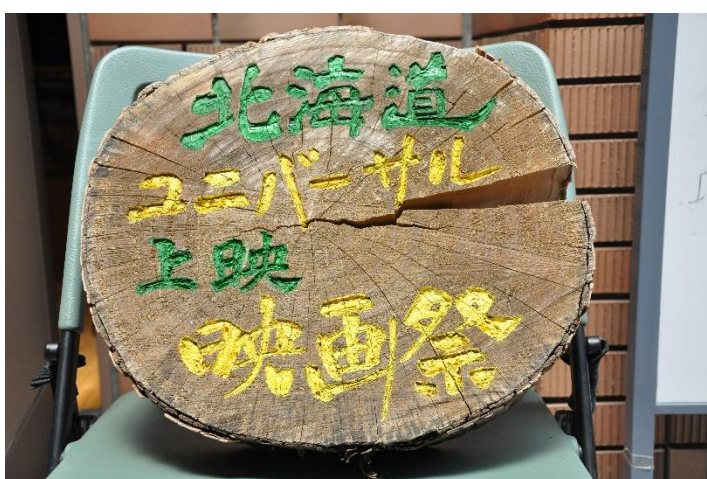 北海道
ユニバーサル
上映
映画祭